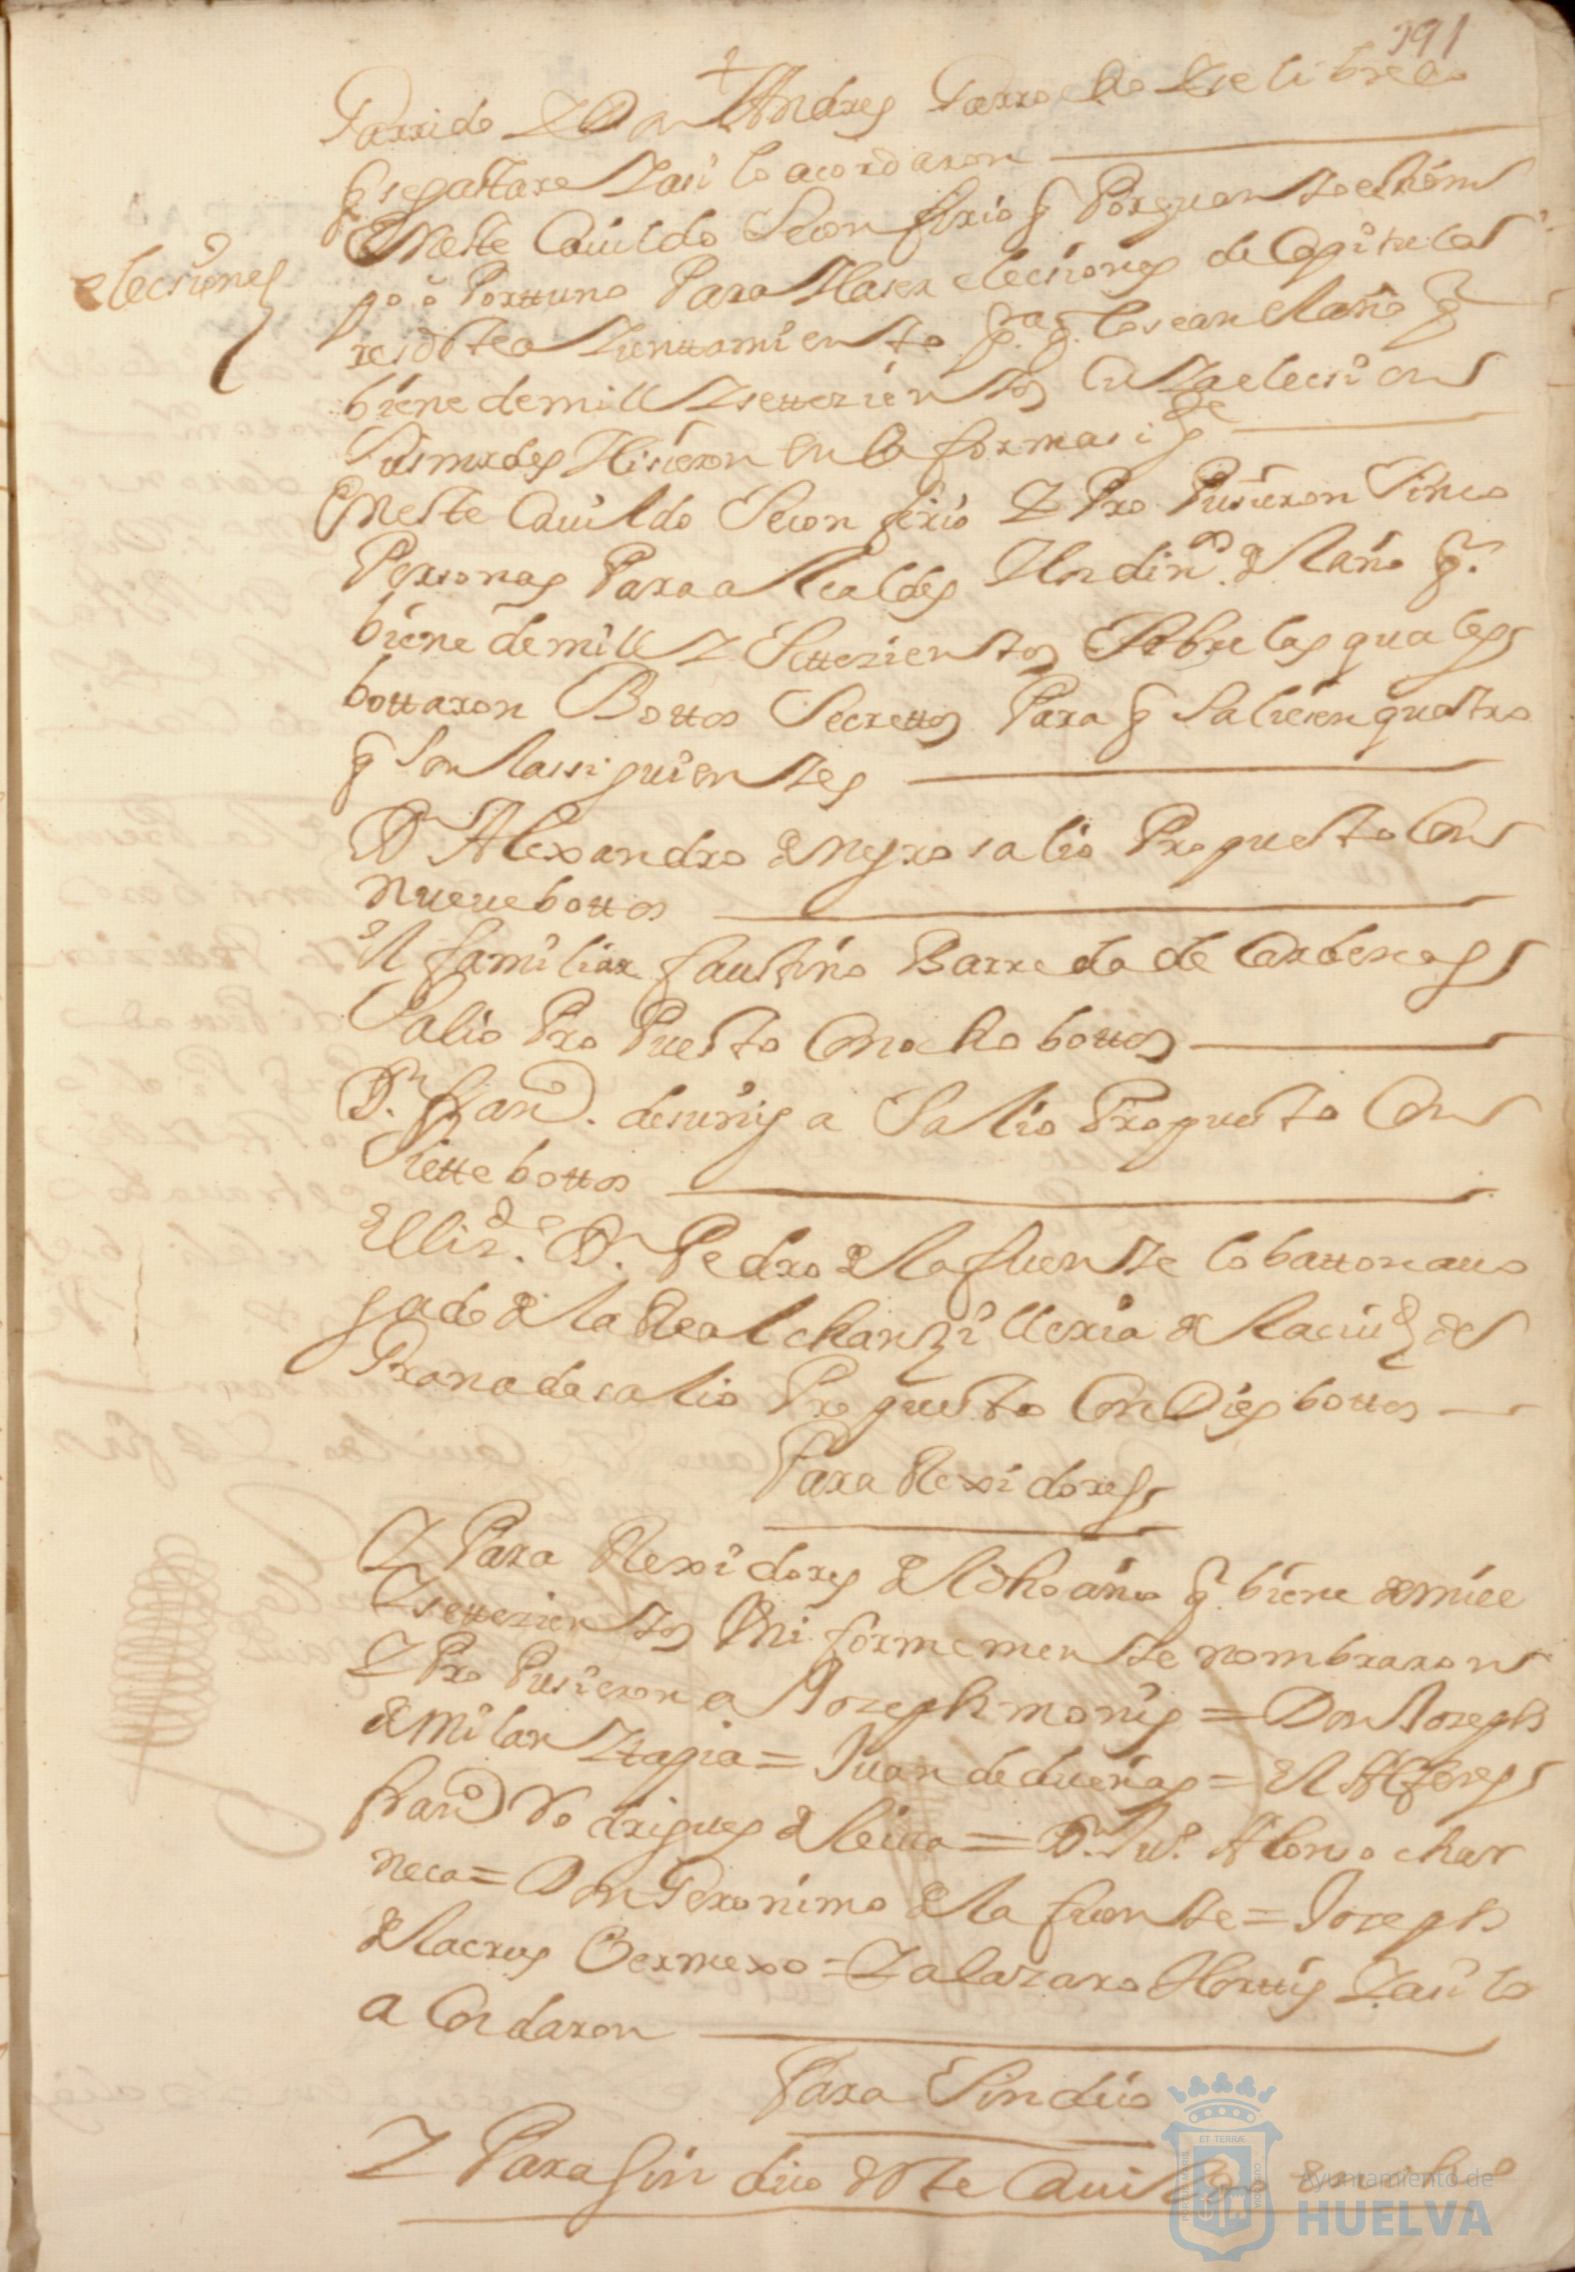 191
Garrido Y Don Andres Garrocho Y se libre lo
q se gastare Y asi lo acordaron
elecsiones
En este Cauildo Se confirio q Por quanto es tiem
po o Porttuno Para Haser elecsiones de Capitula
res deste a Yunttamiento pa. q. lo sean el año q
biene de mill Y settezientos Cuya elecsion
Sus mrdes Hisieron en la forma sigte
En este Cauildo Se confirio Y Pro Pusieron Sinco
Personas Para alcaldes Hordinos. del año q.
biene de mill Y Settezientos Sobre las quales
bottaron Bottos Secrettos Para q Saliesen quatro
q Son las siguientes
Dn Alexandro de negro salio Propuesto Con
nueue bottos
el familiar faustino Barreda de Cardenas
Salio Pro Puesto Con ocho bottos
Dn. Franco. de suñiga Salio Propuesto Con
Siette bottos
El lizdo. Dn. Pedro de la fuente lobatton auo
gado de la Real chanzilleria de la ciud de
Granada salio Propuesto Con Dies bottos
Para Rexidores
Y Para Rexidores del dho año q. biene de mill
Y settezientos Vni formemente nombraron
Y Pro Pusieron a Joseph monis = Don Joseph
de Milan Y tapia = Juan de dueñas = el Alferes
franco Rodrigues de leiua = Dn. Ju. Alonso char
neca = Don Geronimo de la fuente = Joseph
de la crus Bermexo = Y a lazaro Horttis Y asi lo
a Cordaron
Para Sindico
Y Para sindico deste Cauildo
ET TERRÆ
Ayuntamiento de
HUELVA